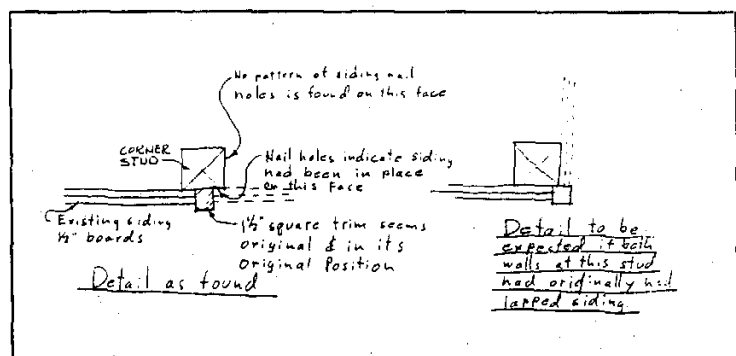 No pattern of siding nail
holes is found on this face
CORNER
STUD
Nail holes indicate siding
had been in place
on this face
Existing siding
1/2" boards
1 1/2" square trim seems
original & in its
original Position
Detail as found
Detail to be
expected if both
walls at this stud
had originally had
lapped siding.